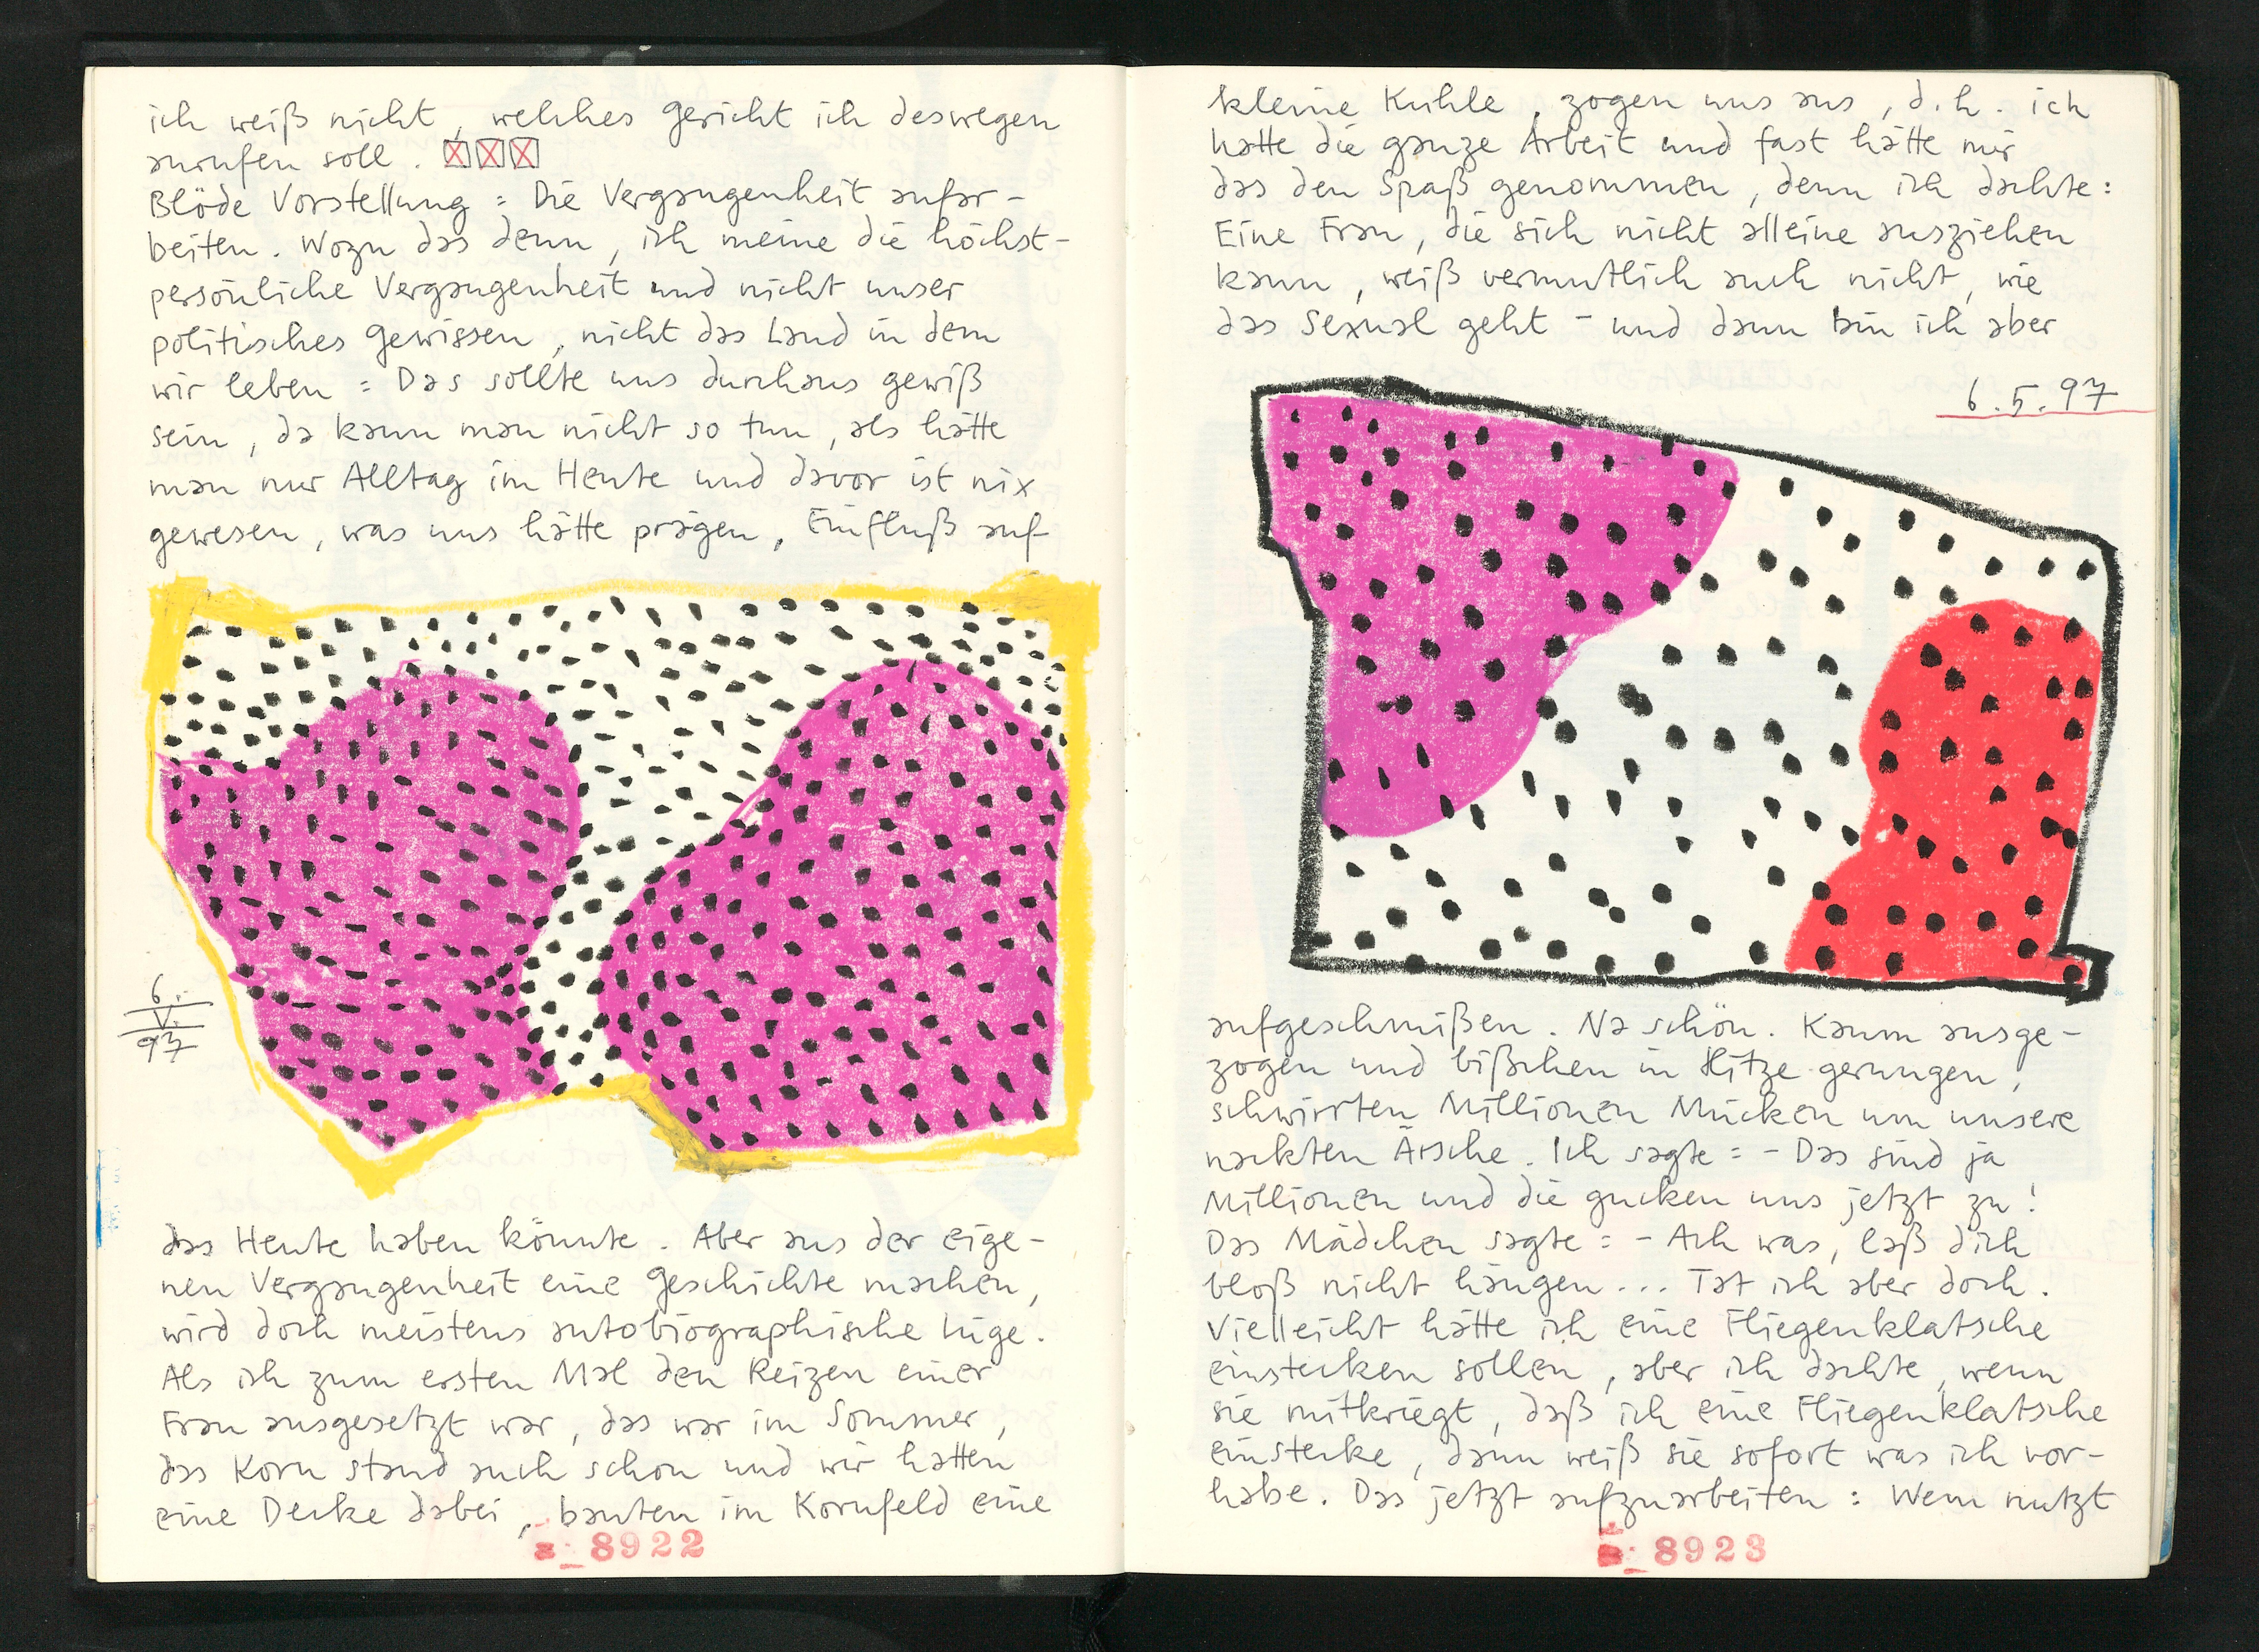 ich weiß nicht, welches Gericht ich deswegen
anrufen soll.
Blöde Vorstellung: Die Vergangenheit aufar-
beiten. Wozu das denn, ich meine die höchst-
persönliche Vergangenheit und nicht unser
politisches Gewissen, nicht das Land in dem
wir leben: Das sollte uns durchaus gewiß
sein, da kann man nicht so tun, als hätte
man nur Alltag im Heute und davor ist nix
gewesen, was uns hätte prägen, Einfluß auf
6.
V.
97
das Heute haben könnte. Aber aus der eige-
nen Vergangenheit eine Geschichte machen,
wird doch meistens autobiographische Lüge.
Als ich zum ersten Mal den Reizen einer
Frau ausgesetzt war, das war im Sommer,
das Korn stand auch schon und wir hatten
eine Decke dabei, bauten im Kornfeld eine
8922
kleine Kuhle, zogen uns aus, d.h. ich
hatte die ganze Arbeit und fast hätte mir
das den Spaß genommen, denn ich dachte:
Eine Frau, die sich nicht alleine ausziehen
kann, weiß vermutlich auch nicht, wie
das Sexual geht - und dann bin ich aber
6.5.97
aufgeschmißen. Na schön. Kaum ausge-
zogen und bißchen in Hitze gerungen,
schwirrten Millionen Mücken um unsere
nackten Ärsche. Ich sagte: - Das sind ja
Millionen und die gucken uns jetzt zu!
Das Mädchen sagte: - Ach was, laß dich
bloß nicht hängen... Tat ich aber doch.
Vielleicht hätte ich eine Fliegenklatsche
einstecken sollen, aber ich dachte, wenn
sie mitkriegt, daß ich eine Fliegenklatsche
einstecke, dann weiß sie sofort was ich vor-
habe. Das jetzt aufzuarbeiten: Wem nutzt
8923